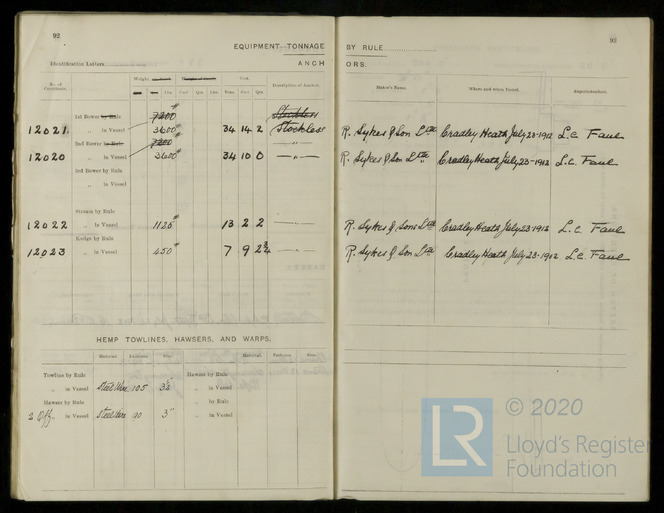 92
93
EQUIPMENT TONNAGE BY RULE
Identification Letters
ANCHORS.
No. of Certificate. Weight Test. Description of Anchor. Maker's Name. Where and when Tested. Superintendent.
Lbs. Cwt. Qrs. Lbs. Tons. Cwt. Qrs.
1st Bower by Rule 7200# Stockless
12021 „ in Vessel 3600# 34 14 2 Stockless R. Sykes & Son Ltd Cradley Heath July 23-1912 L.C. Faul
2nd Bower by Rule 7200 —„—
12020 „ in Vessel 3600# 34 10 0 —„— R. Sykes & Son Ltd Cradley Heath July 23-1912 L.C. Faul
3rd Bower by Rule
„ in Vessel
Stream by Rule
12022 „ in Vessel 1125# 13 2 2 —„— R. Sykes & Son Ltd Cradley Heath July 23-1912 L.C. Faul
Kedge by Rule
12023 „ in Vessel 450# 7 9 2¾ —„— R. Sykes & Son Ltd Cradley Heath July 23-1912 L.C. Faul
HEMP TOWLINES, HAWSERS, AND WARPS.
Material. Fathoms. Size. Material. Fathoms. Size.
Towline by Rule Hawser by Rule
„ in Vessel Steel Wire 105 „ in Vessel
Hawser by Rule „ by Rule
2 Off. „ in Vessel Steel Wire 90 3" „ in Vessel
LR
© 2020
Lloyd's Register
Foundation